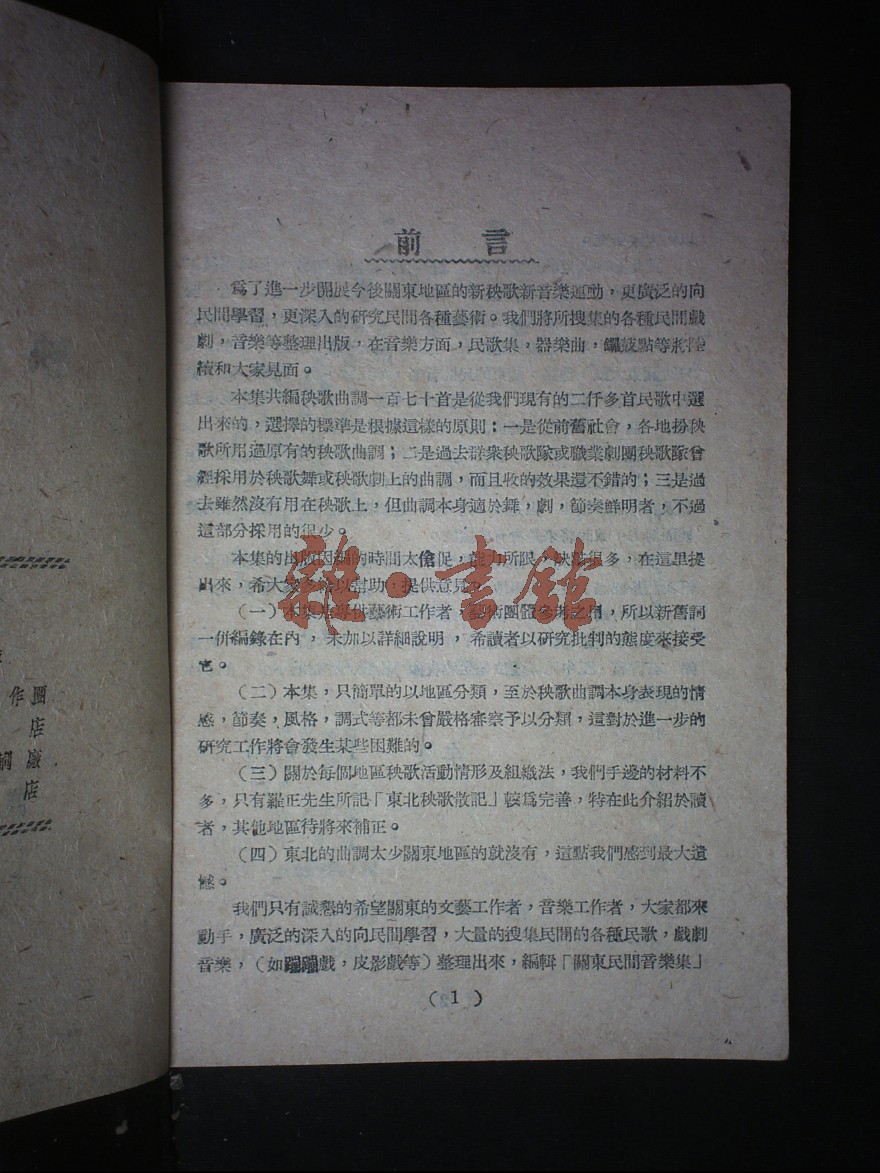 前言
爲了進一步開展今後關東地區的新秧歌新音樂運動，更廣泛的向
民間學習，更深入的研究民間各種藝術。我們將所搜集的各種民間戲
劇，音樂等整理出版，在音樂方面，民歌集，器樂曲，鑼鼓點等將陸
續和大家見面。
本集共編秧歌曲調一百七十首是從我們現有的二仟多首民歌中選
出來的，選擇的標準是根據這樣的原則：一是從前舊社會，各地扮秧
歌所用過原有的秧歌曲調；二是過去群衆秧歌隊或職業劇團秧歌隊曾
經採用於秧歌舞或秧歌劇上的曲調，而且收的效果還不錯的；三是過
去雖然沒有用在秧歌上，但曲調本身適於舞，劇，節奏鮮明者，不過
這部分採用的很少。
本集的出版因編的時間太傖促，能力所限，缺點很多，在這里提
出來，希大家多給以幫助，提供意見。
（一）本集是專供藝術工作者，藝術團體參考之用，所以新舊詞
一倂編錄在內，未加以詳細說明，希讀者以研究批判的態度來接受
它。
（二）本集，只簡單的以地區分類，至於秧歌曲調本身表現的情
感，節奏，風格，調式等都未曾嚴格審察予以分類，這對於進一步的
研究工作將會發生某些困難的。
（三）關於每個地區秧歌活動情形及組織法，我們手邊的材料不
多，只有羅正先生所記「東北秧歌散記」較爲完善，特在此介紹於讀
者，其他地區待將來補正。
（四）東北的曲調太少關東地區的就沒有，這點我們感到最大遺
憾。
我們只有誠懇的希望關東的文藝工作者，音樂工作者，大家都來
動手，廣泛的深入的向民間學習，大量的搜集民間的各種民歌，戲劇
音樂，（如蹦蹦戲，皮影戲等）整理出來，編輯「關東民間音樂集」
（1）
作團
店
廠
店
雜·書館